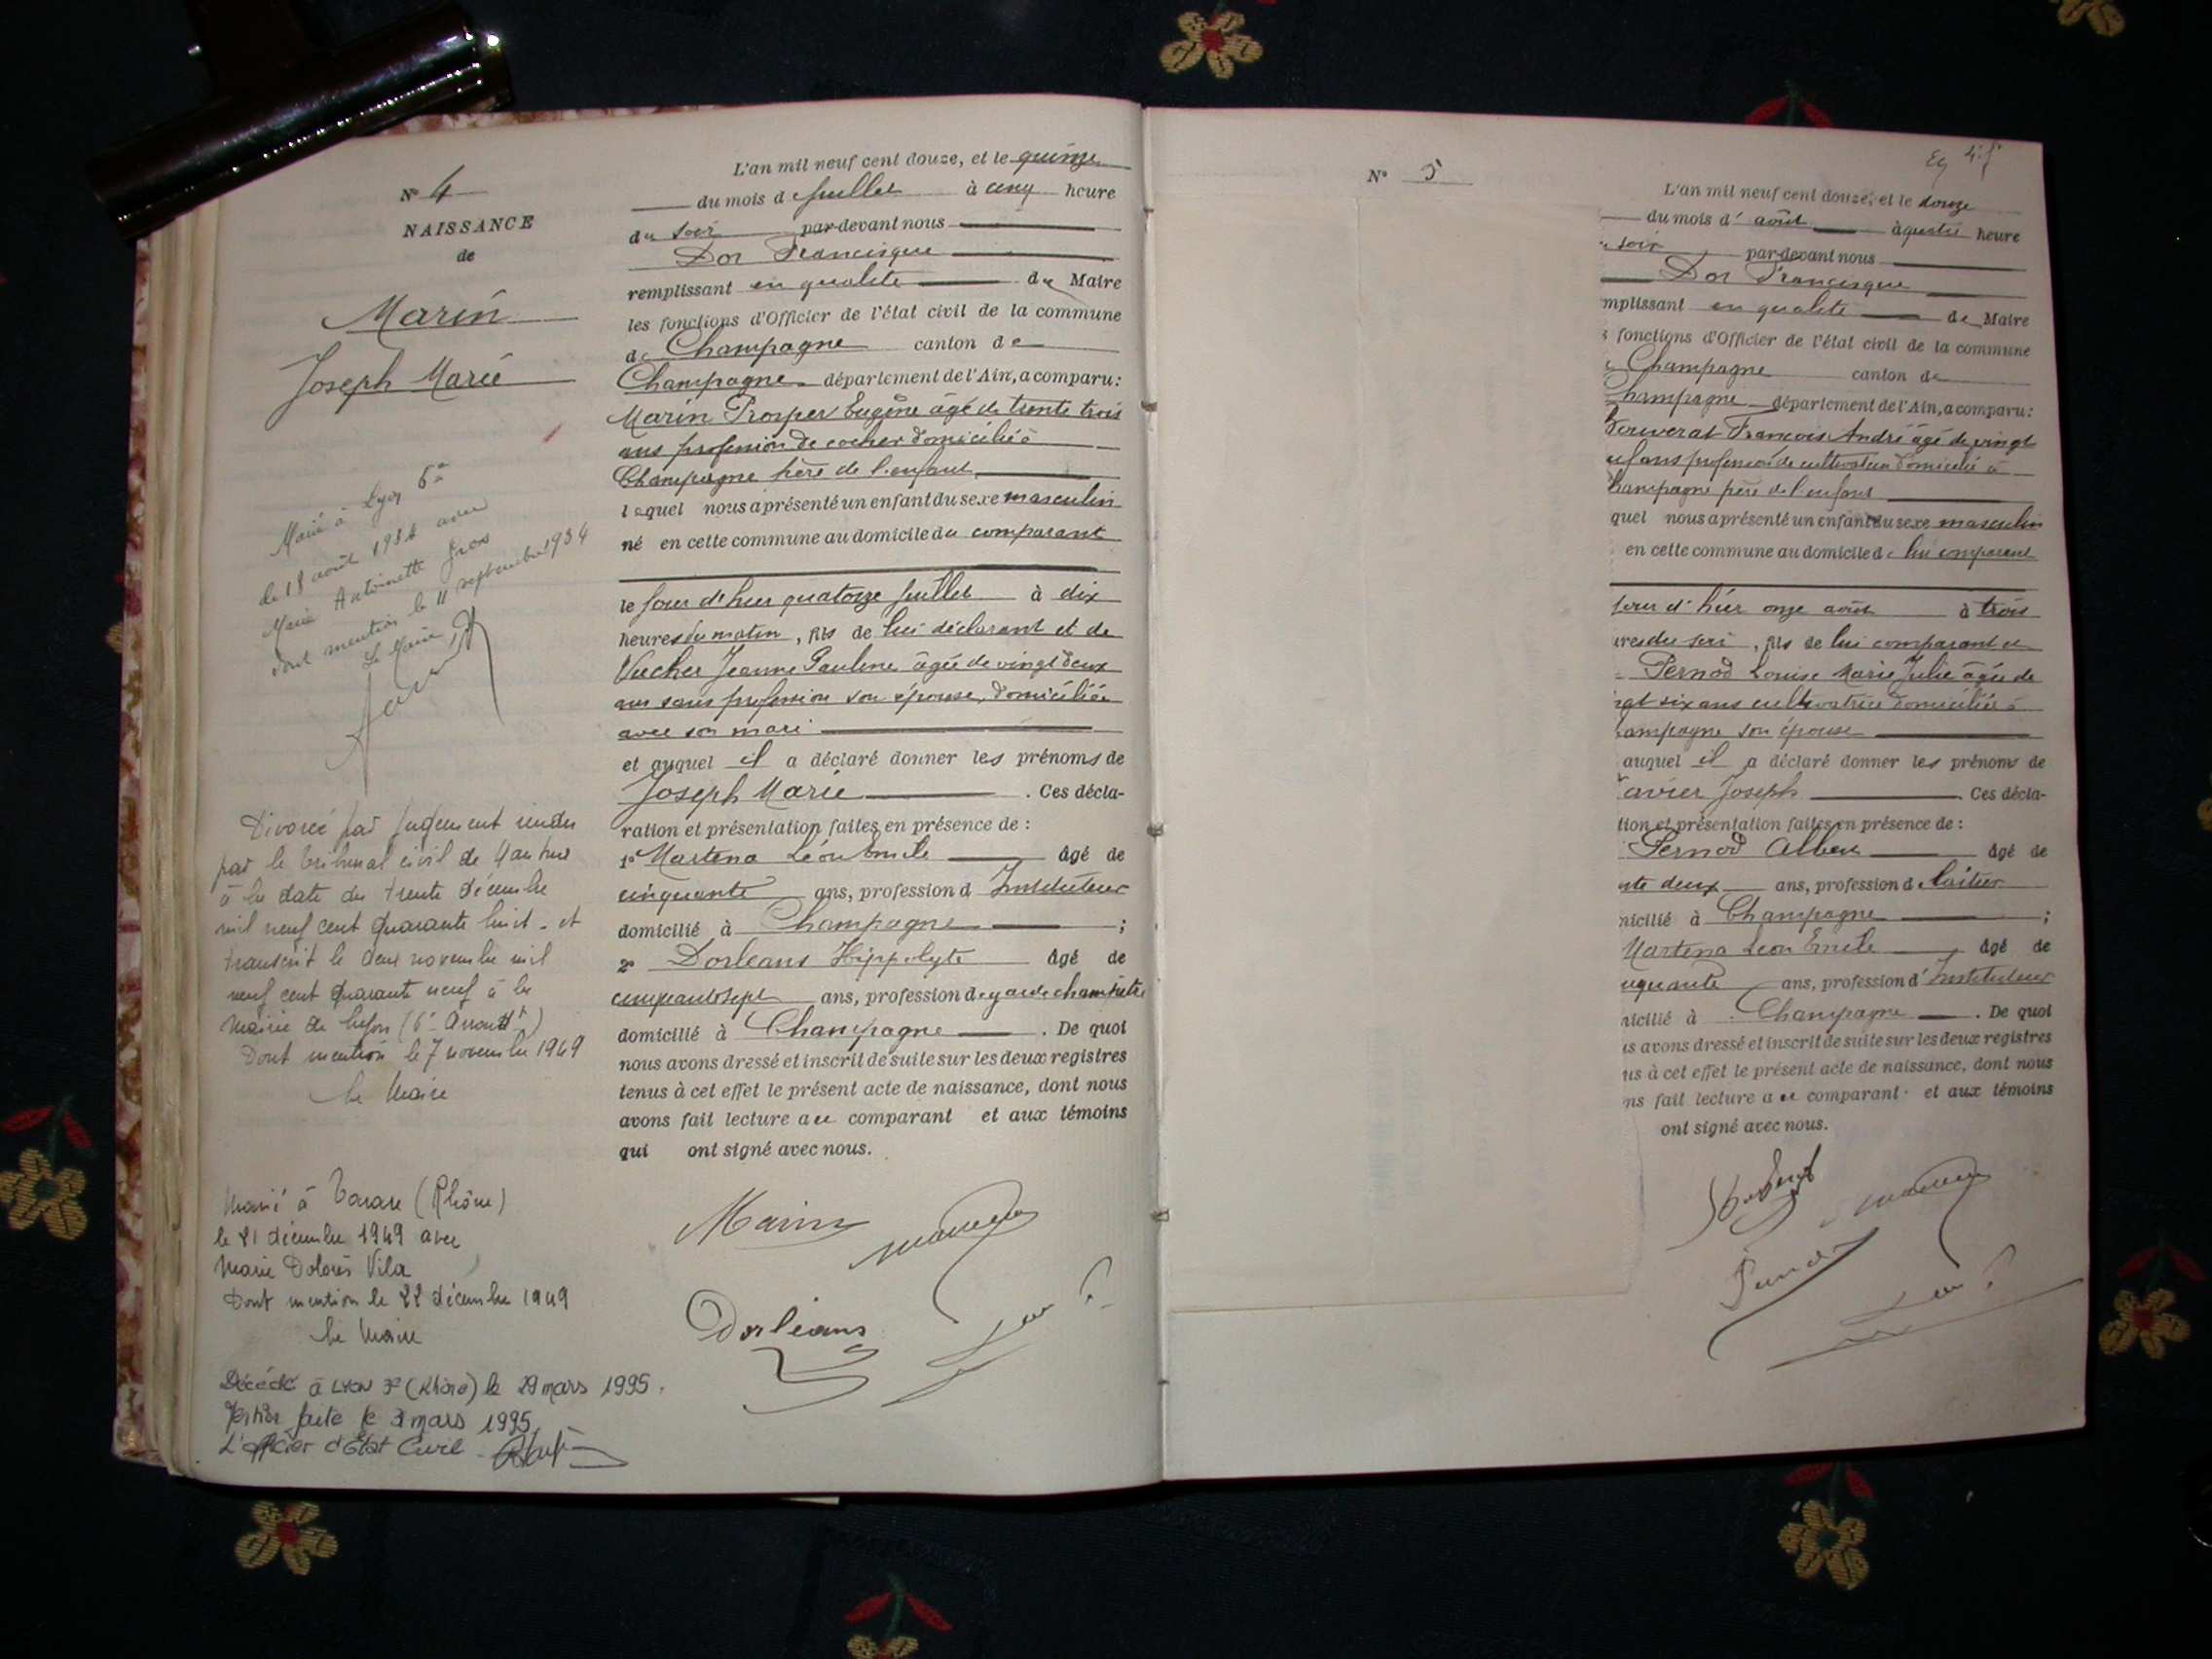 N° 4
NAISSANCE
de
Marin
Joseph Marie
Marié à Lyon 6e
le 18 août 1934 avec
Marie Antoinette
dont mention le 11 septembre 1934
Le Maire
Divorcé par jugement rendu
par le tribunal civil de
à la date du trente décembre
mil neuf cent quarante huit - et
transcrit le deux novembre mil
neuf cent quarante neuf à la
Mairie de Lyon (6e Arrondt)
Dont mention le 7 novembre 1949
Le Maire
Marié à Tarare (Rhône)
le 21 décembre 1949 avec
Marie Dolorès Vila
Dont mention le 22 décembre 1949
Le Maire
Décédé à LYON 3e (Rhône) le 29 mars 1995.
faite le mars 1995
L'officier d'Etat Civil
L'an mil neuf cent douze, et le quinze
du mois de juillet à cinq heure
du soir par-devant nous
Dor Francisque
remplissant en qualité de Maire
les fonctions d'Officier de l'état civil de la commune
de Champagne canton de
Champagne département de l'Ain, a comparu:
Marin Prosper Eugène âgé de trente trois
ans profession de cocher domicilié à
Champagne père de l'enfant
lequel nous a présenté un enfant du sexe masculin
né en cette commune au domicile du comparant
le jour d'hier quatorze juillet à dix
heures du matin, fils de lui déclarant et de
Vucher Jeanne Pauline âgée de vingt deux
ans sans profession son épouse, domiciliée
avec son mari
et auquel il a déclaré donner les prénoms de
Joseph Marie . Ces décla-
ration et présentation faites en présence de :
1° Martena Léon Emile âgé de
cinquante ans, profession d'Instituteur
domicilié à Champagne ;
2° Dorleans Hippolyte âgé de
cinquante sept ans, profession de garde champêtre
domicilié à Champagne . De quoi
nous avons dressé et inscrit de suite sur les deux registres
tenus à cet effet le présent acte de naissance, dont nous
avons fait lecture au comparant et aux témoins
qui ont signé avec nous.
Marin
Dorléans
N° 5
L'an mil neuf cent douze, et le douze
du mois d'août à quatre heure
soir par-devant nous
Dor Francisque
mplissant en qualité de Maire
s fonctions d'Officier de l'état civil de la commune
Champagne canton de
hampagne département de l'Ain, a comparu:
François André âgé de vingt
uf ans profession de cultivateur domicilié à
hampagne père de l'enfant
quel nous a présenté un enfant du sexe masculin
en cette commune au domicile de lui comparant
jour d'hier onze août à trois
ures du soir, fils de lui comparant et
Pernod Louise Marie Julie âgée de
ngt six ans cultivatrice domiciliée à
ampagne son épouse
auquel il a déclaré donner les prénoms de
avier Joseph . Ces décla-
tion et présentation faites en présence de :
Pernod Albert âgé de
nte deux ans, profession de laitier
nicilié à Champagne ;
Martena Léon Emile âgé de
nquante ans, profession d'Instituteur
nicilié à Champagne . De quoi
us avons dressé et inscrit de suite sur les deux registres
us à cet effet le présent acte de naissance, dont nous
ns fait lecture au comparant et aux témoins
ont signé avec nous.